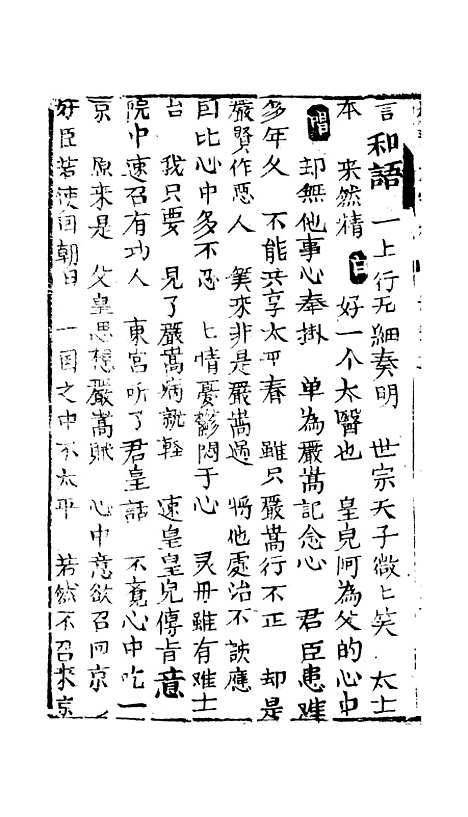 言和語 一上行无細奏明 世宗天子微〻笑 太上
本 来然精 白 好一个太醫也 皇皃阿為父的心中
唱 却無他事心奉掛 单為嚴嵩記念心 君臣患难
多年父 不能共享太平春 雖只嚴嵩行不正 却是
嚴賢作悪人 筭來非是嚴嵩過 將他處治不該應
囙比心中多不忍 上情憂鬱悶于心 灵丹雖有难士
台 我只要 見了嚴嵩病就軽 速皇皇皃傳肯意
院中速召有功人 東宮听了君皇話 不竟心中吃一
京 原来是 父皇思想嚴嵩賊 心中意欲召囬京
奸臣若使囬朝日 一国之中不太平 若然不召來京